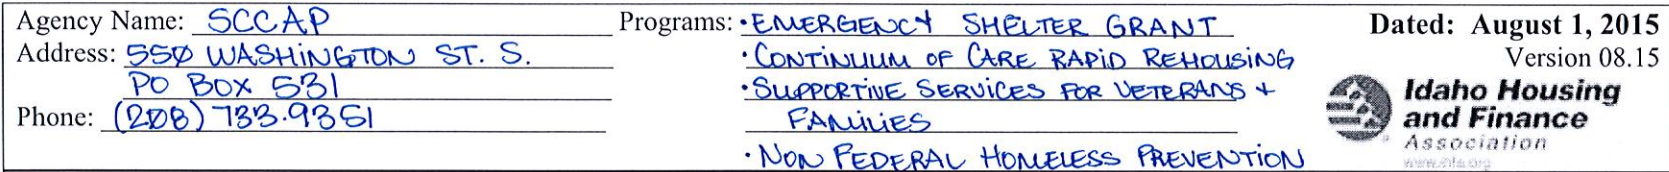 Agency Name: SCCAP
Address: 550 WASHINGTON ST. S.
PO BOX 531
Phone: (208) 733.9351
Programs: • EMERGENCY SHELTER GRANT
• CONTINUUM OF CARE RAPID REHOUSING
• SUPPORTIVE SERVICES FOR VETERANS +
FAMILIES
• NON FEDERAL HOMELESS PREVENTION
Dated: August 1, 2015
Version 08.15
Idaho Housing
and Finance
Association
www.ihfa.org